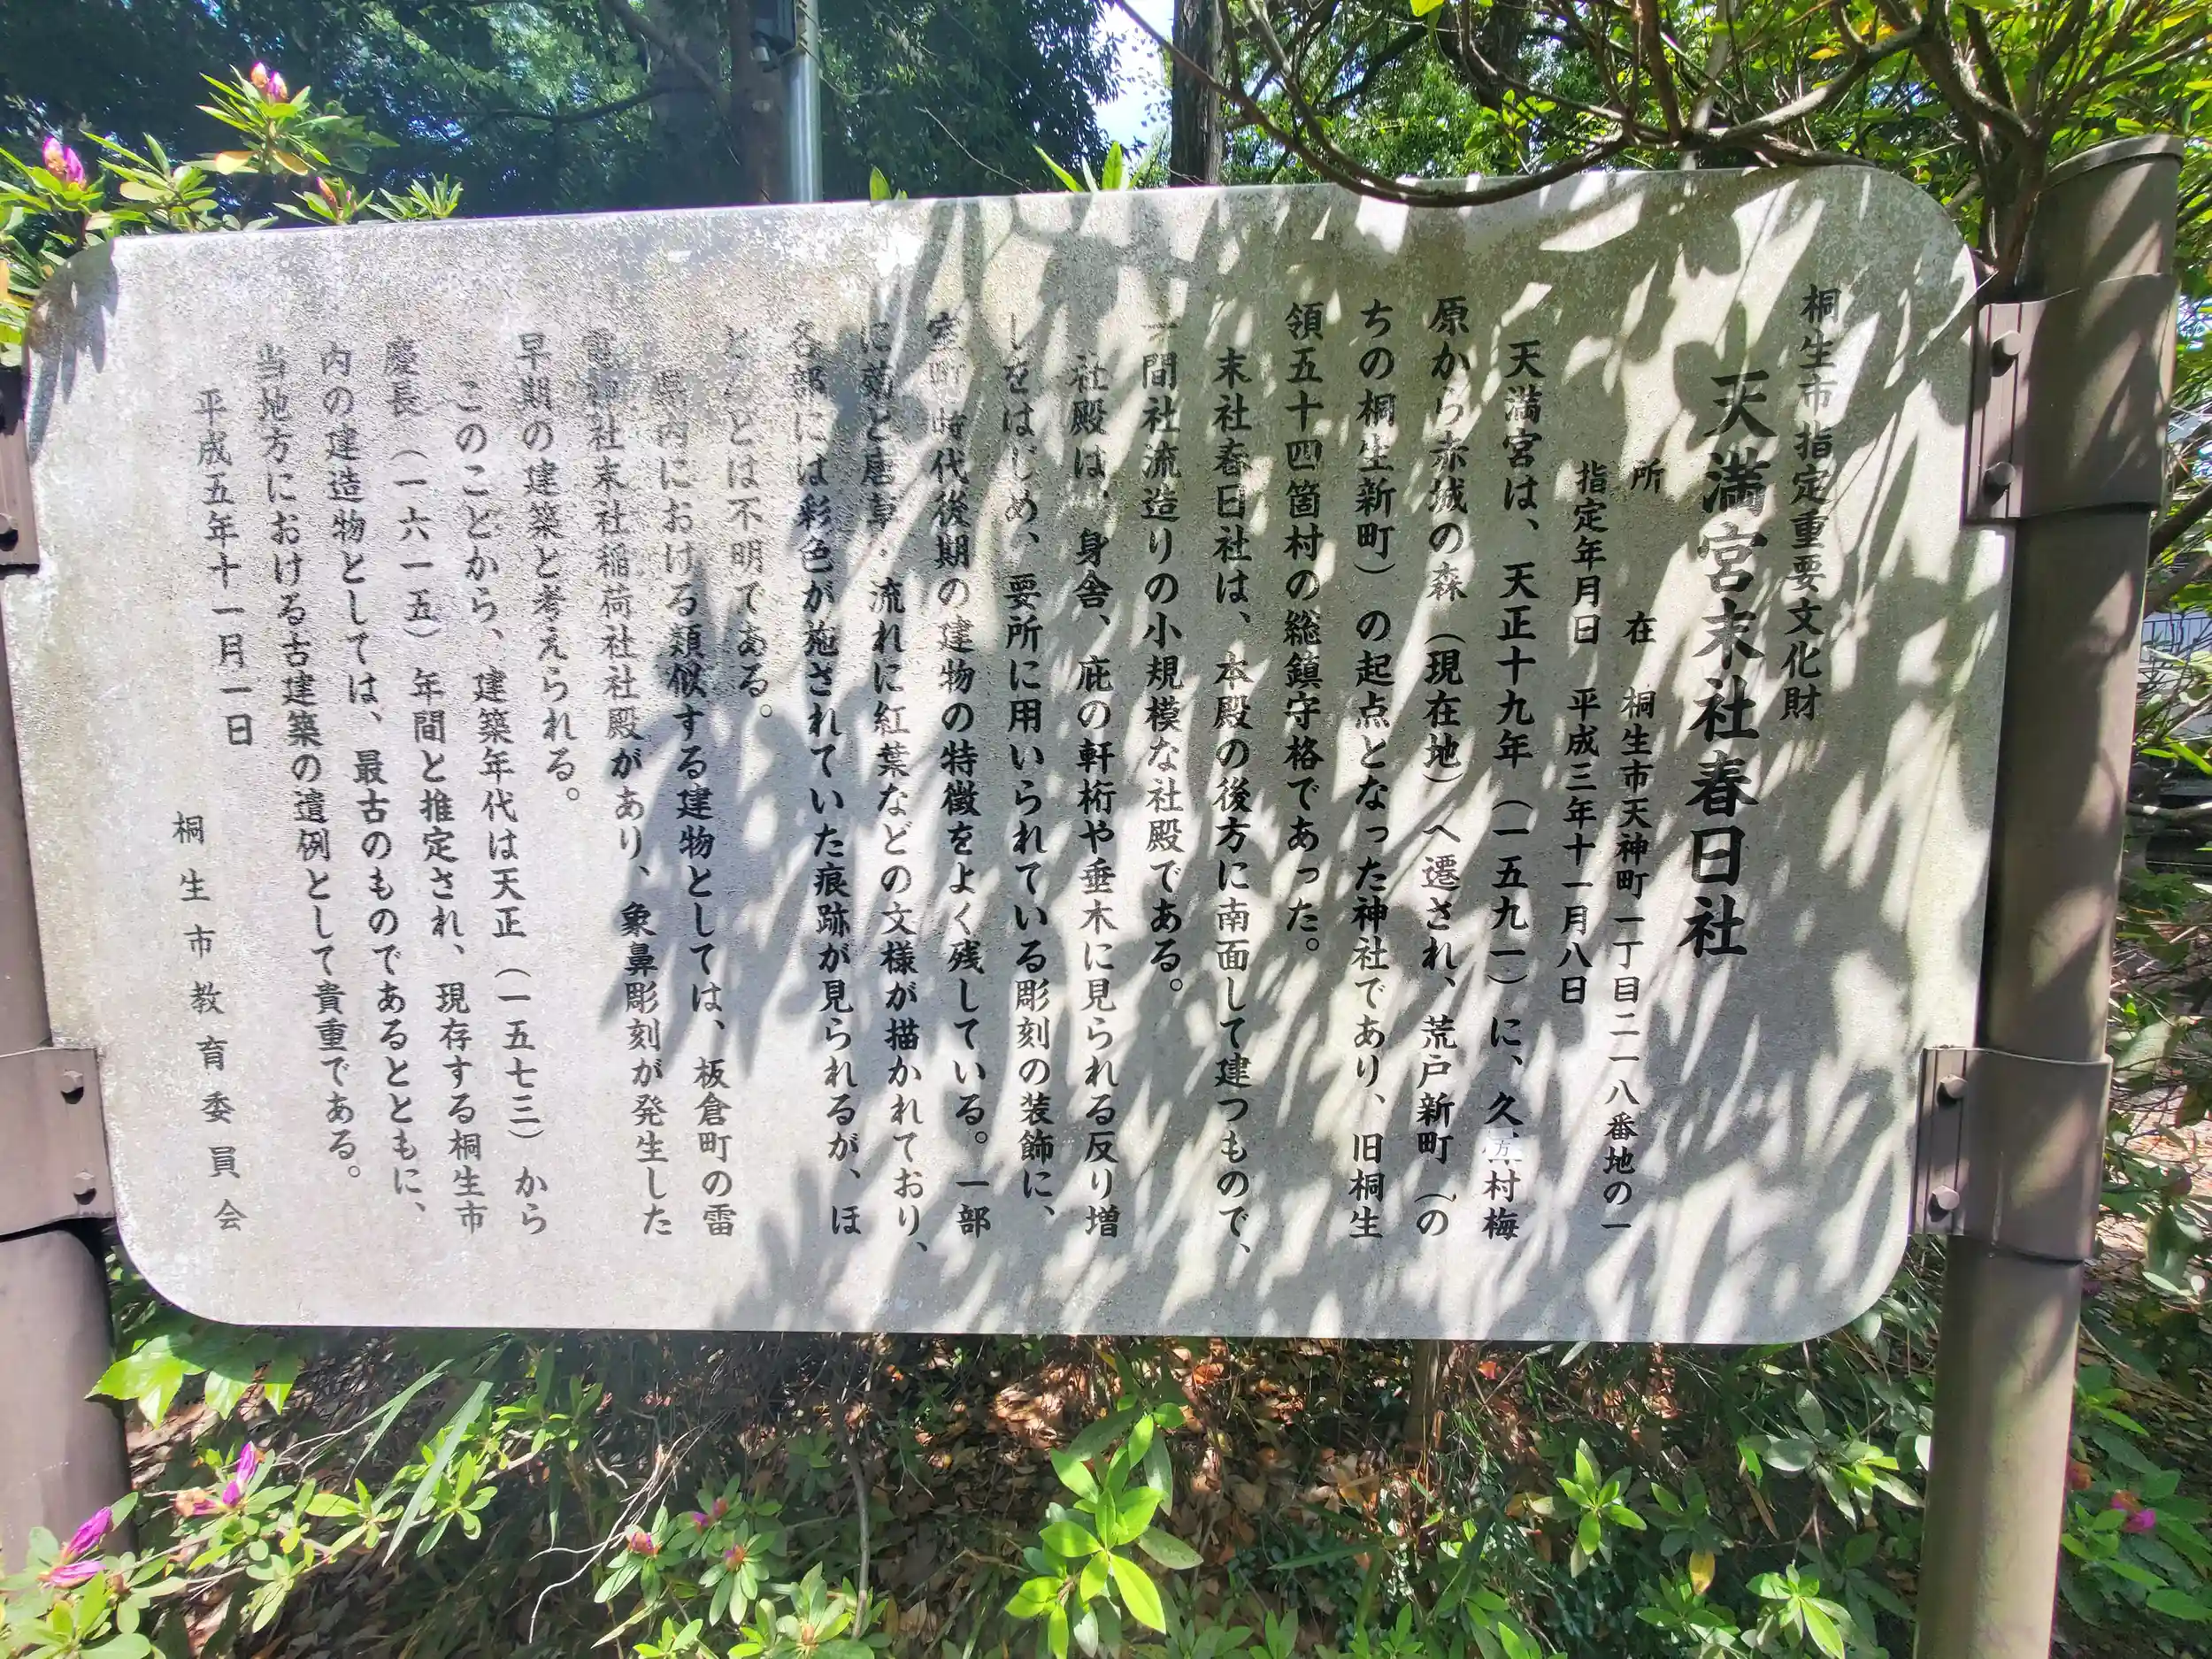 桐生市指定重要文化財
天満宮末社春日社
所在 桐生市天神町一丁目二一八番地の一
指定年月日 平成三年十一月八日
天満宮は、天正十九年（一五九一）に、久方村梅
原から赤城の森（現在地）へ遷され、荒戸新町（の
ちの桐生新町）の起点となった神社であり、旧桐生
領五十四箇村の総鎮守格であった。
末社春日社は、本殿の後方に南面して建つもので、
一間社流造りの小規模な社殿である。
社殿は、身舎、庇の軒桁や垂木に見られる反り増
しをはじめ、要所に用いられている彫刻の装飾に、
室町時代後期の建物の特徴をよく残している。一部
に菊と唐草・流れに紅葉などの文様が描かれており、
各部には彩色が施されていた痕跡が見られるが、ほ
とんどは不明である。
県内における類似する建物としては、板倉町の雷
電神社末社稲荷社社殿があり、象鼻彫刻が発生した
早期の建築と考えられる。
このことから、建築年代は天正（一五七三）から
慶長（一六一五）年間と推定され、現存する桐生市
内の建造物としては、最古のものであるとともに、
当地方における古建築の遺例として貴重である。
平成五年十一月一日
桐生市教育委員会